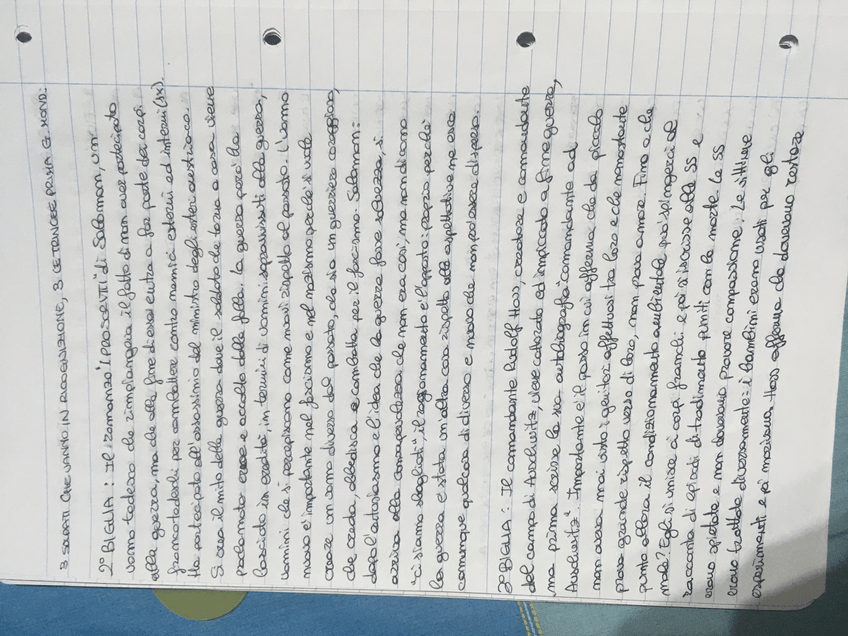 3 SOLDATI CHE VANNO IN RECENSIONE, 3 TRINCEE PRIMA G. MOND:
2° BIGLIA: Il romanzo "I PROSCRITTI" di Salomon, un
uomo tedesco che rimpiangera il fatto di non aver partecipato
alla guerra, ma che alla fine di essa entra a far parte dei corpi
franchi tedeschi per combattere contro nemici esterni ed interni (sx).
Ha partecipato all'assassinio del ministro degli esteri austriaco.
Si crea il mito della guerra dove il soldato che torna a casa viene
proclamato eroe e accolto dalla folla. La guerra però ha
lasciato in eredità, in termini di uomini sopravvissuti alla guerra,
uomini che si percepiscono come nuovi rispetto al passato. L'uomo
nuovo è importante nel fascismo e nel nazismo perché si vuole
creare un uomo diverso dal passato, che sia un guerriero coraggioso,
che creda, obbedisca e combatta per il fascismo. Salomon:
dopo l'entusiasmo e l'idea che la guerra fosse salvezza, si
arriva alla consapevolezza che non era così, ma non diciamo
"ci siamo sbagliati", il ragionamento è l'opposto: proprio perché
la guerra è stata un'altra cosa rispetto alle aspettative ma era
comunque qualcosa di diverso e nuovo che non può essere disperso.
3° BIGLIA: Il comandante Rudolf Hoss, creatore e comandante
del campo di Auschwitz, viene catturato ed impiccato a fine guerra,
ma prima scrisse la sua autobiografia "comandante ad
Auschwitz". Importante è il passo in cui afferma che da piccolo
non aveva mai visto i genitori affettuosi tra loro e che nonostante
prova grande rispetto verso di loro, non prova amore. Fino a che
punto allora il condizionamento ambientale può spingerci al
male? Egli si unisce ai corpi franchi e poi si iscrisse alle SS e
racconta di episodi di tradimento puniti con la morte. Le SS
erano spietate e non dovevano provare compassione. Le vittime
erano trattate diversamente: i bambini erano usati per gli
esperimenti e poi morivano. Hoss afferma che dovevano restare